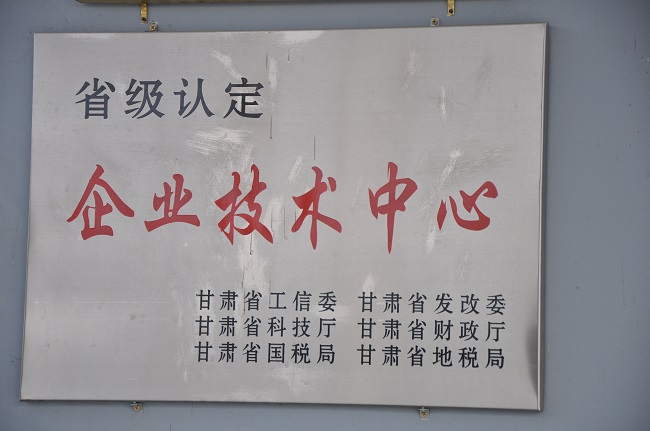 省级认定
企业技术中心
甘肃省工信委 甘肃省发改委
甘肃省科技厅 甘肃省财政厅
甘肃省国税局 甘肃省地税局